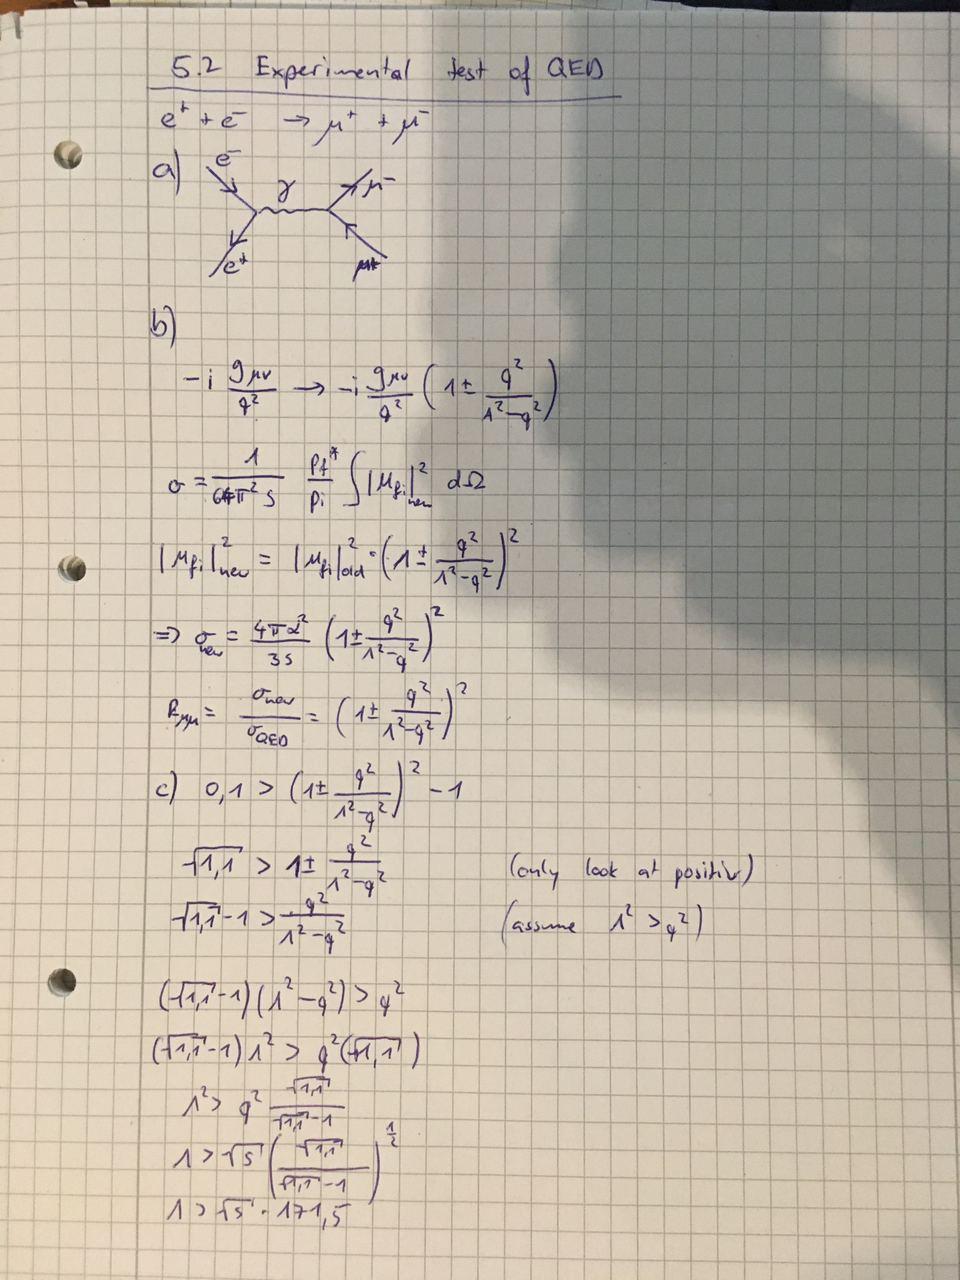 5.2 Experimental test of QED
e⁺ + e⁻ → μ⁺ + μ⁻
a)
e⁻ γ μ⁻
e⁺ μ⁺
b)
-i g_μν/q² → -i g_μν/q² (1 ± q²/(Λ²-q²))
σ = 1/(64π² s) p_f*/p_i ∫ |M_fi|²_new dΩ
|M_fi|²_new = |M_fi|²_old · (1 ± q²/(Λ²-q²))²
⇒ σ_new = 4πα²/3s (1 ± q²/(Λ²-q²))²
R_μμ = σ_new/σ_QED = (1 ± q²/(Λ²-q²))²
c) 0,1 > (1 ± q²/(Λ²-q²))² - 1
√1,1 > 1 ± q²/(Λ²-q²) (only look at positiv)
√1,1 - 1 > q²/(Λ²-q²) (assume Λ² > q²)
(√1,1 - 1)(Λ² - q²) > q²
(√1,1 - 1) Λ² > q² (√1,1)
Λ² > q² √1,1/(√1,1 - 1)
Λ > √s (√1,1/(√1,1 - 1))^½
Λ > √s · 171,5